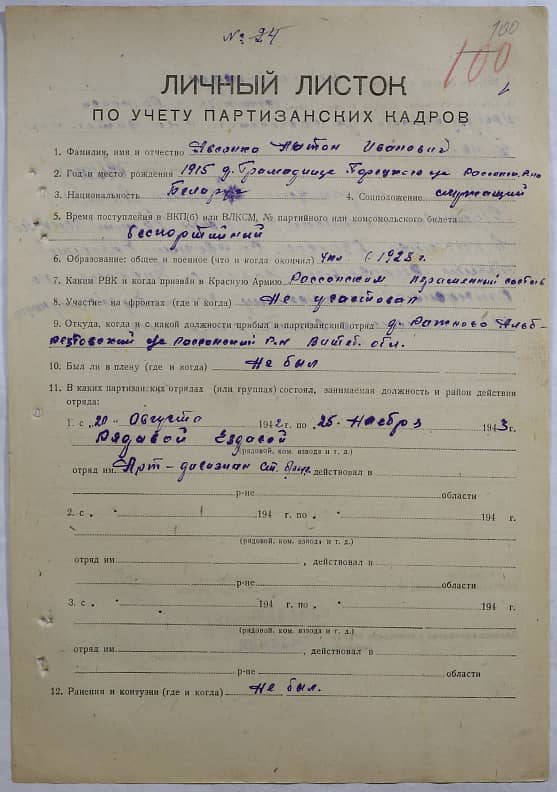 № 24
100
100
ЛИЧНЫЙ ЛИСТОК
ПО УЧЕТУ ПАРТИЗАНСКИХ КАДРОВ
1. Фамилия, имя и отчество Авсенко Антон Иванович
2. Год и место рождения 1915 д. Грамаднице
3. Национальность Беларус 4. Соцположение служащий
5. Время поступления в ВКП(б) или ВЛКСМ, № партийного или комсомольского билета
беспортийный
6. Образование: общее и военное (что и когда окончил) 1928 г.
7. Каким РВК и когда призван в Красную Армию Россонским
8. Участие на фронтах (где и когда) Не участовал
9. Откуда, когда и с какой должности прибыл в партизанский отряд д. Ражново Альб-
Россонский р-н Витеб. обл.
10. Был ли в плену (где и когда) Не был
11. В каких партизанских отрядах (или группах) состоял, занимаемая должность и район действия
отряда:
1. с „20" Августа 1942 г. по „25" Ноября 1943 г.
Рядавой Ездавой
(рядовой, ком. взвода и т. д.)
отряд им. Арт-дивизиан действовал в
р-не области
2. с „ " 194 г. по „ " 194 г.
(рядовой, ком. взвода и т. д.)
отряд им. , действовал в
р-не области
3. с „ " 194 г. по „ " 194 г.
(рядовой, ком. взвода и т. д.)
отряд им. , действовал в
р-не области
12. Ранения и контузии (где и когда) Не был.